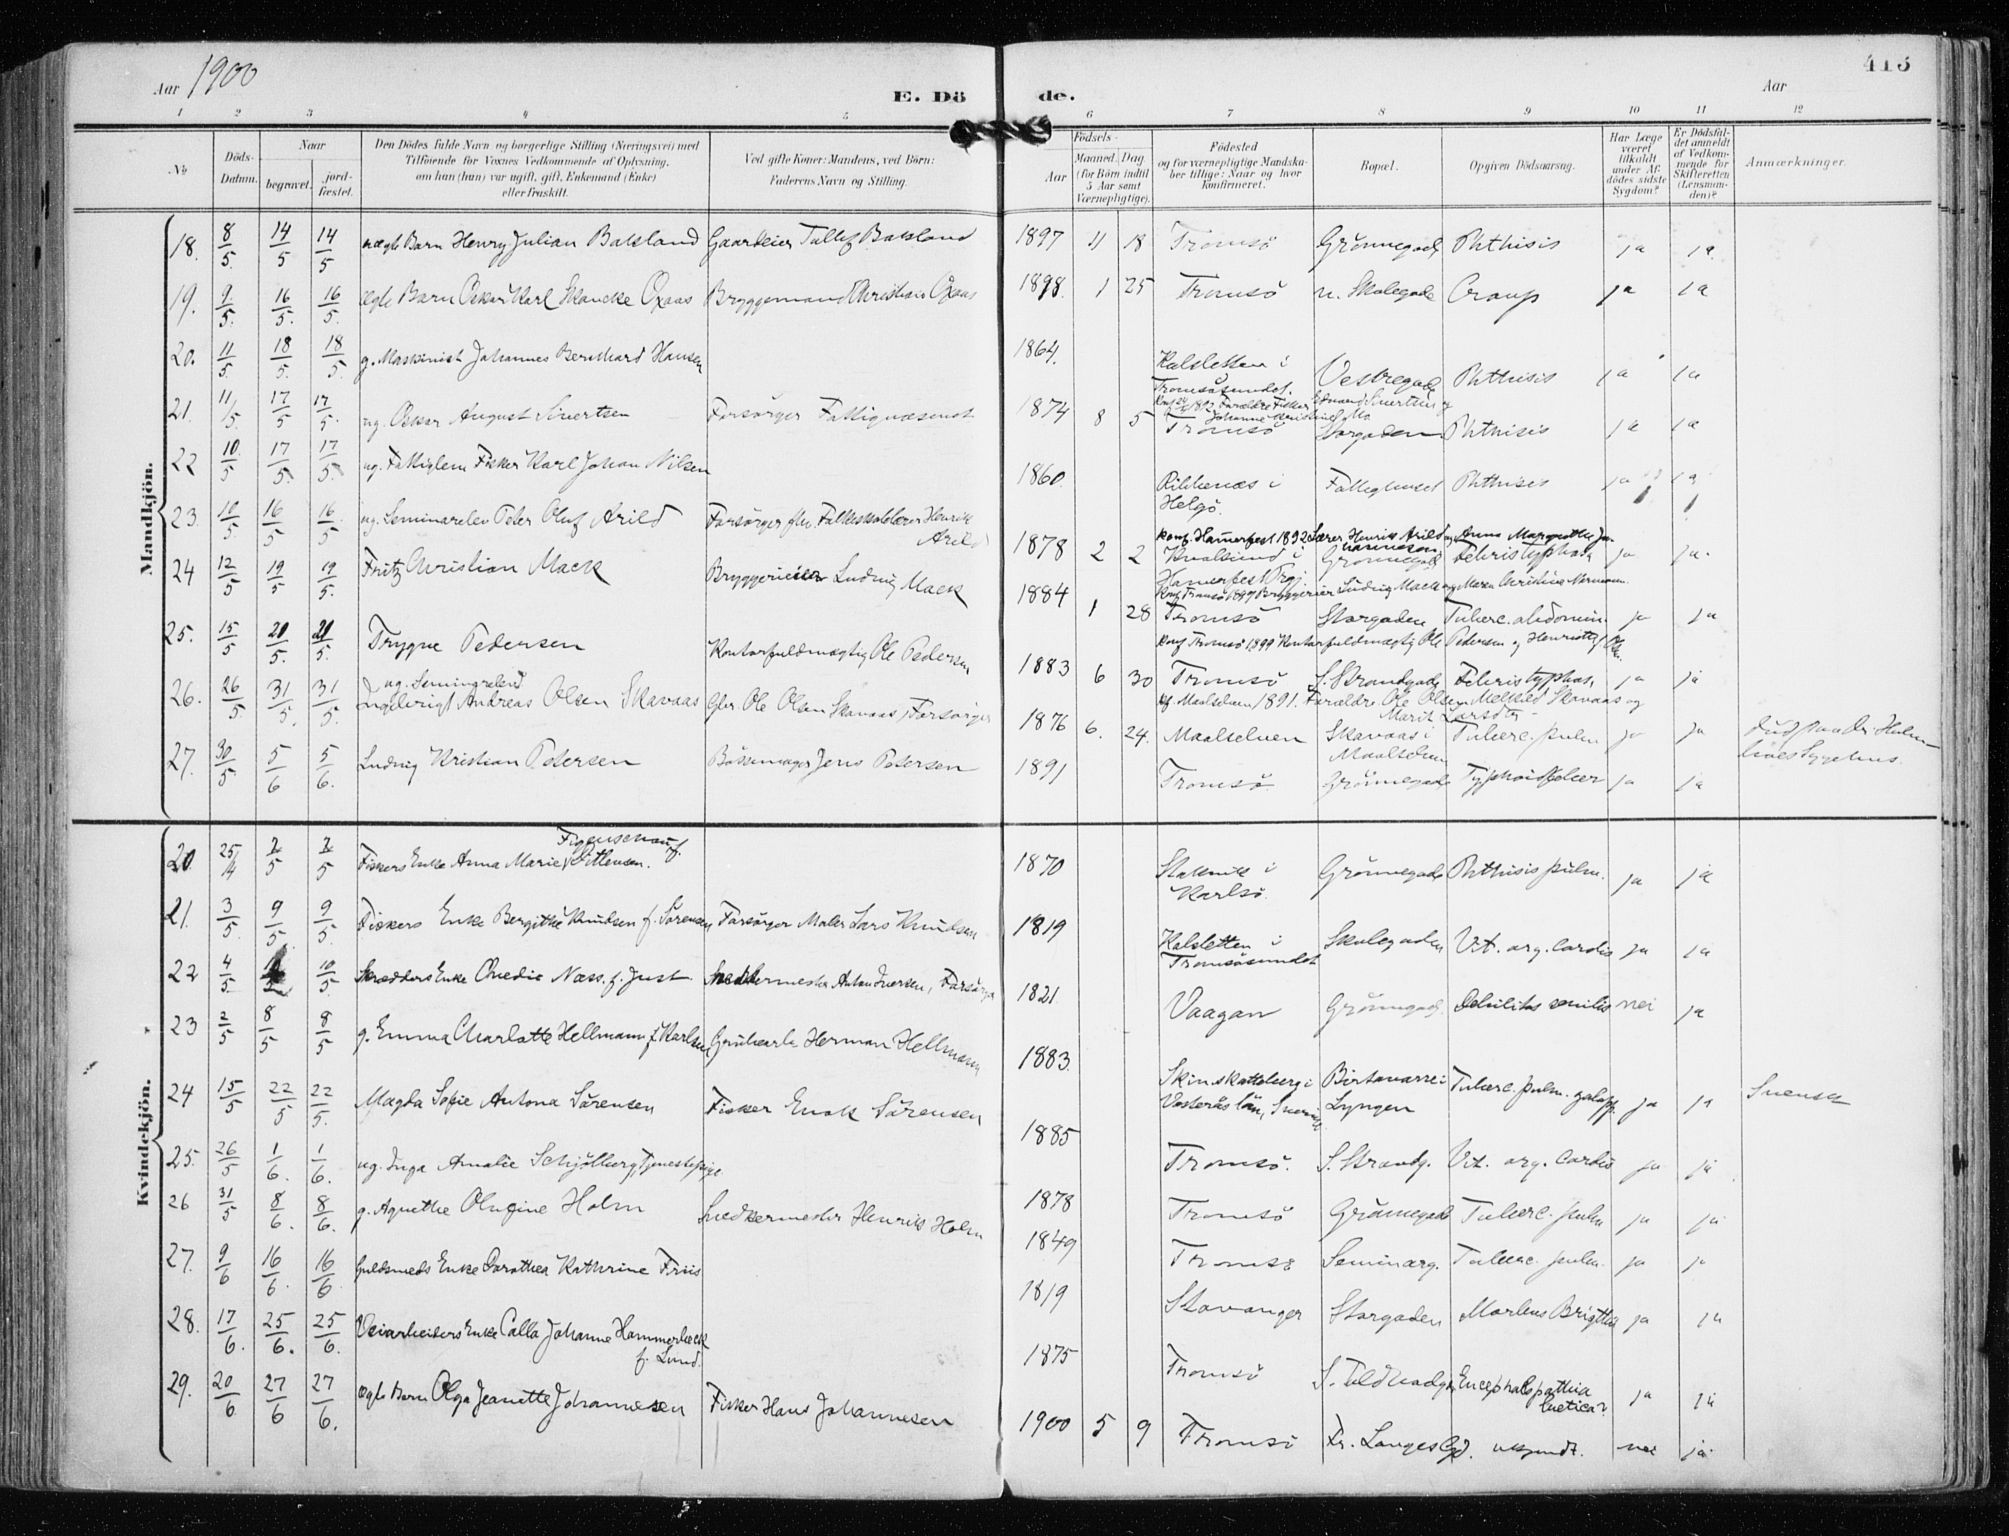 Aar 1900
E. Döde.
415
Aar
1 2 3 4 5 6 7 8 9 10 11 12
No
Döds-Datum.
Naar
begravet.
jordfæstet.
Den Dödes fulde Navn og borgerlige Stilling (Næringsvei) med
Tilföiende for Voxnes Vedkommende af Oplysning.
om han (hun) var ugift, gift, Enkemand (Enke)
eller fraskilt.
Ved gifte Koner: Mandens, ved Börn:
Faderens Navn og Stilling.
Födsels-
Aar
Maaned. Dag.
(for Börn indtil
5 Aar samt
Værnepligtige).
Födested
og for værnepligtige Mandska-
ber tillige: Naar og hvor
konfirmeret.
Bopæl.
Opgiven Dödsaarsag.
Har Læge
været
tilkaldt
under Af-
dödes sidste
Sygdom?
Er Dödsfal-
det anmeldt
af Vedkom-
mende for
Skifteretten
(Lensman-
den)?
Anmærkninger.
Mandkjön.
18. 8/5. 14/5 14/5 uægte Barn Henry Julian Baksland Gaardeier Tollef Baksland 1897 11 18 Tromsö Grönnegad. Phthisis ja ja
19. 9/5. 16/5. 16/5. ægte Barn Oskar Karl Skancke Oxaas Bryggemand Christian Oxaas 1898. 1 25 Tromsö n. Skolegade Croup ja ja
20. 11/5 18/5. 18/5. g. Maskinist Johannes Bernhard Hansen 1864. Kalsletten i
Tromsösundet. Vestregade Phthisis ja ja
21. 11/5 17/5 17/5. ug. Oskar August Sivertsen Forsörger Fattigvæsenet 1874 8 5 Tromsö Storgaden Phthisis ja ja
22 10/5 17/5. 17/5. ug. Fattiglem Fisker Karl Johan Nilsen 1860. i
Helgö. Fattighuset Phthisis ja ja
23. 10/5. 16/5 16/5 ug. Seminarelev Peter Oluf Arild Forsörger fhv. Folkeskolelærer Henrik
Arild
konf. Hamerfest 1892 Lærer Henrik Arild og Anna Margrethe
1878 2 2 Kvalsund i
Hamerfest Prgj. Grönnegad. Febris typhos. ja ja.
24 12/5 19/5 19/5. Fritz Christian Mack Bryggerieier Ludvig Mack
Konf. Tromsö 1899 Bryggerieier Ludvig Mack og Maren Christine Normann.
1884 1 28 Tromsö Storgaden Tuberc. abdomin ja ja
25. 15/5 20/5. 20/5. Trygve Pedersen Kontorfuldmægtig Ole Pedersen
konf Tromsö 1899 Kontorfuldmægtig Ole Pedersen og Henriette
1883 6 30 Tromsö S. Strandgade Febris typhos. ja ja
26. 26/5. 31/5. 31/5. ug. Seminarelev
Ingebrigt Andreas Olsen Skavaas Gbr. Ole Olsen Skavaas, Forsörger
Maalselven 1891. Forældre Ole Olsen Skavaas og
Marit Larsdtr
1876 6. 24. Maalselven Skavaas i
Maalselven Tuberc. pulm ja ja
27. 30/5 5/6 5/6. Ludvig Kristian Petersen Bössemager Jens Petersen 1891 Tromsö Grönnegade Typhoidfeber ja ja
Kvindekjön.
20. 25/4 2/5 2/5 Fiskers Enke Anna Marie Figenschau f.
Dittensen. 1870 Staknik i
Karlsö. Grönnegade Phthisis pulm. ja ja
21. 3/5. 9/5. 9/5. Fiskers Enke Bergithe Knudsen f. Sörensen Forsörger Maler Lars Knudsen 1819 Kalsletten i
Tromsösundet Skolegaden Vit. org. cordis ja ja
22 4/5. 10/5 Skrædders Enke Næss. f. Just Snedkermester Anton Iversen, Forsörger 1821. Vaagan Grönnegad. Debilitas senilis nei ja
23 2/5 8/5 8/5 g. Emma Charlotte Hellmann f. Karlsen Grubearb. Herman Hellmann 1883. Skinskatteberg i
Vesterås län, Sverige Birtavarre i
Lyngen Tuberc. pulm. galopp. ja ja Svensk
24 15/5 22/5 22/5. Magda Sofie Antona Sörensen Fisker Enok Sörensen 1885 Tromsö. S. Strandg. Vit. org. Cordis ja ja
25. 26/5 1/6. 1/6. ug. Inga Amalie Schjölberg, Tjenestepige 1878 Tromsö Grönnegade Tuberc. pulm ja ja
26 31/5 8/6. 8/6. g. Agnethe Olufine Holm Snedkermester Henrik Holm 1849 Tromsö Seminarg. Tuberc. pulm. ja ja
27. 9/6 16/6. 16/6. Guldsmeds Enke Dorothea Kathrine Friis 1819 Stavanger Storgaden Morbus Brigthii ja ja
28. 17/6. 25/6. 25/6. Veiarbeiders Enke Calla Johanne Hammerbeck
f. Lund. 1875 Tromsö S. Toldbodg. Encephalopathia
luetica? ja ja
29. 20/6 27/6 27/6. ægte Barn Olga Jeanette Johannesen Fisker Hans Johannesen 1900 5 9 Tromsö Fr. Langes Gd. ukjendt. nei ja